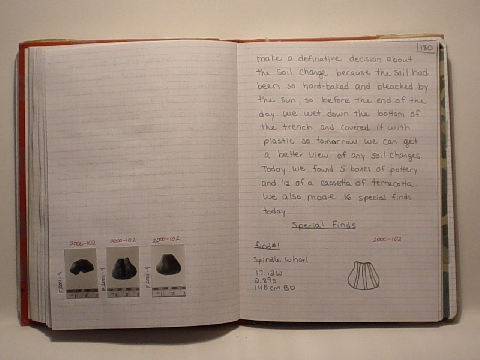 2000-102 2000-102 2000-102
180
make a definitive decision about
the soil change because the soil had
been so hard-baked and bleached by
the sun so before the end of the
day we wet down the bottom of
the trench and covered it with
plastic so tomorrow we can get
a better view of any soil changes.
Today we found 5 boxes of pottery
and 1/2 of a cassetta of terracotta.
We also made 16 special finds
today.
Special Finds
find#1
2000-102
Spindle Whorl